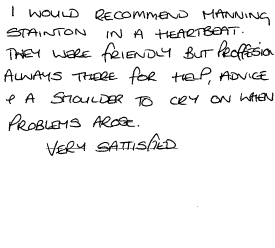 I WOULD RECOMMEND MANNING
STAINTON IN A HEARTBEAT.
THEY WERE FRIENDLY BUT PROFFESION
ALWAYS THERE FOR HELP, ADVICE
& A SHOULDER TO CRY ON WHEN
PROBLEMS AROSE.
VERY SATTISFIED